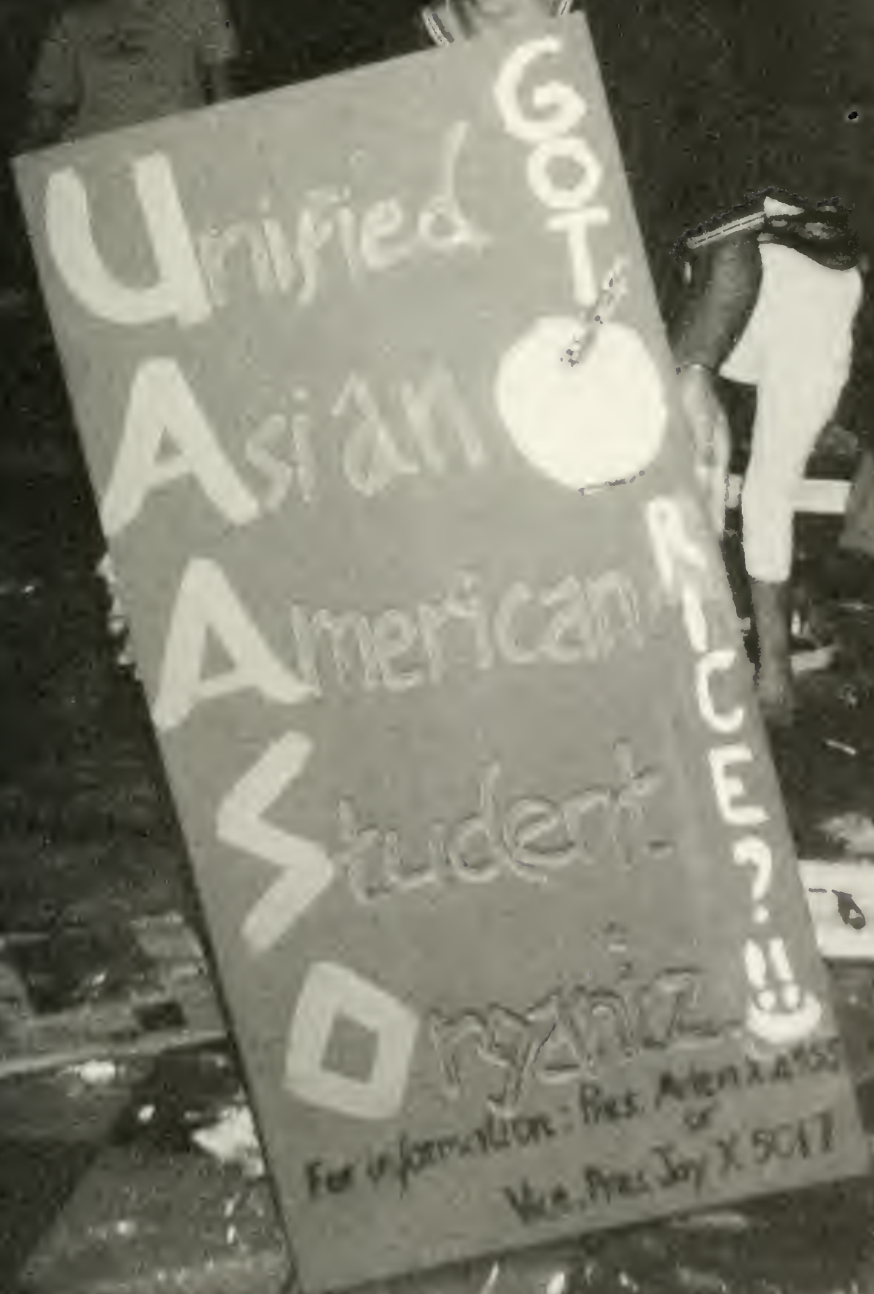 Unified
Asian
American
Student
Organiz
GOT
RICE?!!
For information: Pres. Arlen X
or
Vice. Pres Jay X 5017